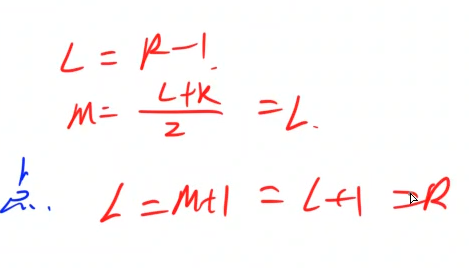 L = R-1.
M = (L+R)/2 = L.
L = M+1 = L+1 = R